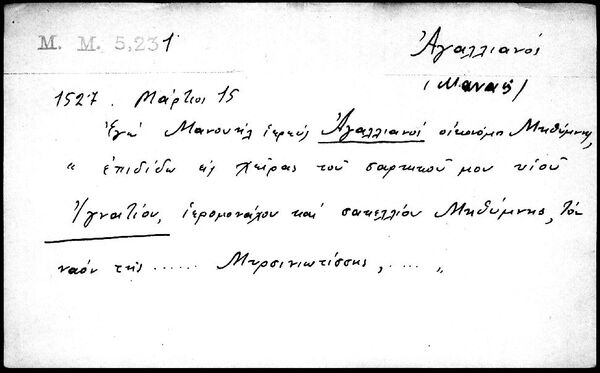 M. M. 5,231
Ἀγαλλιανός
(Μανουὴλ)
1527. Μάρτιος 15
Ἐγὼ Μανουὴλ ἱερεὺς Ἀγαλλιανός οἰκονόμος Μηθύμνης,
" ἐπιδίδω εἰς χεῖρας τοῦ σαρκικοῦ μου υἱοῦ
Ἰγνατίου, ἱερομονάχου καὶ σακελλίου Μηθύμνης, τὸν
ναὸν τῆς ...... Μυρσινιωτίσσης, .... "